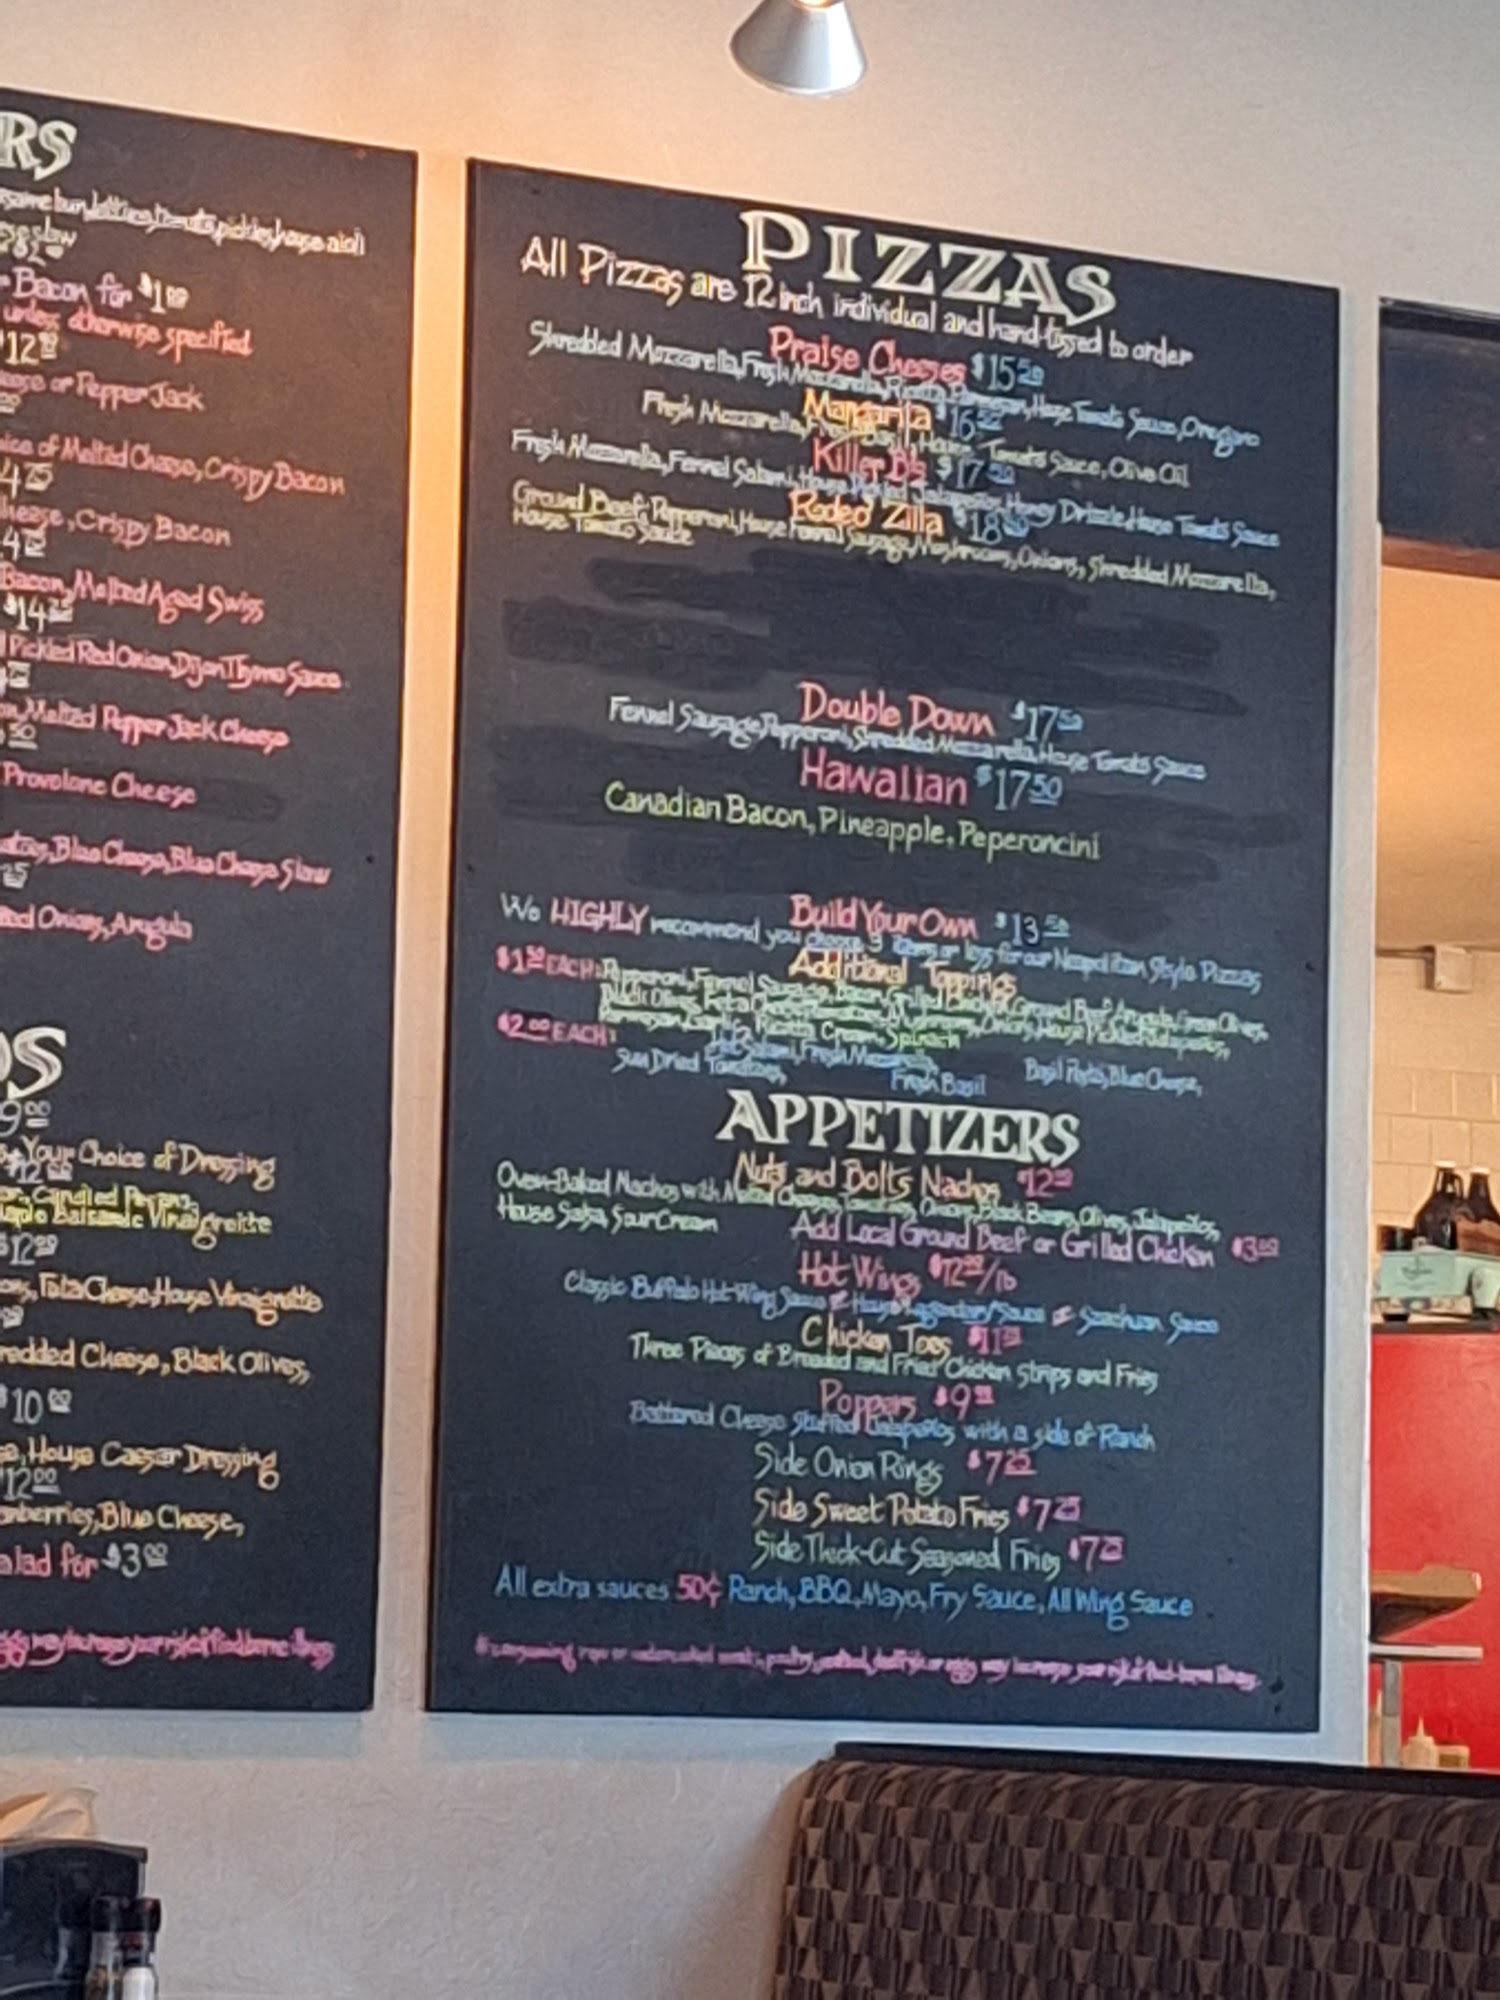 RS
same bun, lettuce, tomato, pickles, house aioli
Bacon for $1.00
unless otherwise specified
$12
or Pepper Jack
of Melted Cheese, Crispy Bacon
4.75
Cheese, Crispy Bacon
Bacon, Melted Aged Swiss
$14
Pickled Red Onion, Dijon Thyme Sauce
Melted Pepper Jack Cheese
50
Provolone Cheese
Blue Cheese, Blue Cheese Slaw
25
Onions, Arugula
9.00
Your Choice of Dressing
12.00
Candied Pecans,
Balsamic Vinaigrette
$12
Feta Cheese, House Vinaigrette
Shredded Cheese, Black Olives,
$10.00
House Caesar Dressing
$12.00
Blue Cheese,
Salad for $3.00
PIZZAS
All Pizzas are 12 inch individual and hand-tossed to order
Praise Cheeses $15.50
Shredded Mozzarella, Fresh Mozzarella, Ricotta, Parmesan, House Tomato Sauce, Oregano
Margarita $16
Fresh Mozzarella, Fresh Basil, House Tomato Sauce, Olive Oil
Killer B's $17.50
Fresh Mozzarella, Fennel Salami, House Pickled Jalapeños, Honey Drizzle, House Tomato Sauce
Rodeo Zilla $18
Ground Beef, Pepperoni, House Fennel Sausage, Mushrooms, Onions, Shredded Mozzarella,
House Tomato Sauce
Double Down $17.50
Fennel Sausage, Pepperoni, Shredded Mozzarella, House Tomato Sauce
Hawaiian $17.50
Canadian Bacon, Pineapple, Peperoncini
Build Your Own $13.50
We HIGHLY recommend you choose 3 items or less for our Neapolitan Style Pizzas,
Additional Toppings
$1.50 EACH: Pepperoni, Fennel Sausage, Bacon, Grilled Chicken, Ground Beef, Arugula, Green Olives,
Black Olives, Feta Cheese, Tomatoes, Mushrooms, Onions, House Pickled Jalapeños,
Parmesan, Garlic, Ricotta Cream, Spinach
$2.00 EACH: Salami, Fresh Mozzarella,
Sun Dried Tomatoes, Fresh Basil Basil Pesto, Blue Cheese,
APPETIZERS
Nuts and Bolts Nachos $12
Oven-Baked Nachos with Melted Cheeses, Tomatoes, Onions, Black Beans, Olives, Jalapeños,
House Salsa, Sour Cream Add Local Ground Beef or Grilled Chicken $3.00
Hot Wings $12/lb
Classic Buffalo Hot Wing Sauce House Legendary Sauce Szechuan Sauce
Chicken Toes $11
Three Pieces of Breaded and Fried Chicken Strips and Fries
Poppers $9
Battered Cheese Stuffed Jalapeños with a side of Ranch
Side Onion Rings $7.25
Side Sweet Potato Fries $7.25
Side Thick-Cut Seasoned Fries $7.25
All extra sauces 50¢ Ranch, BBQ, Mayo, Fry Sauce, All Wing Sauce
consuming raw or undercooked meats, poultry, seafood, shellfish or eggs may increase your risk of food-borne illness